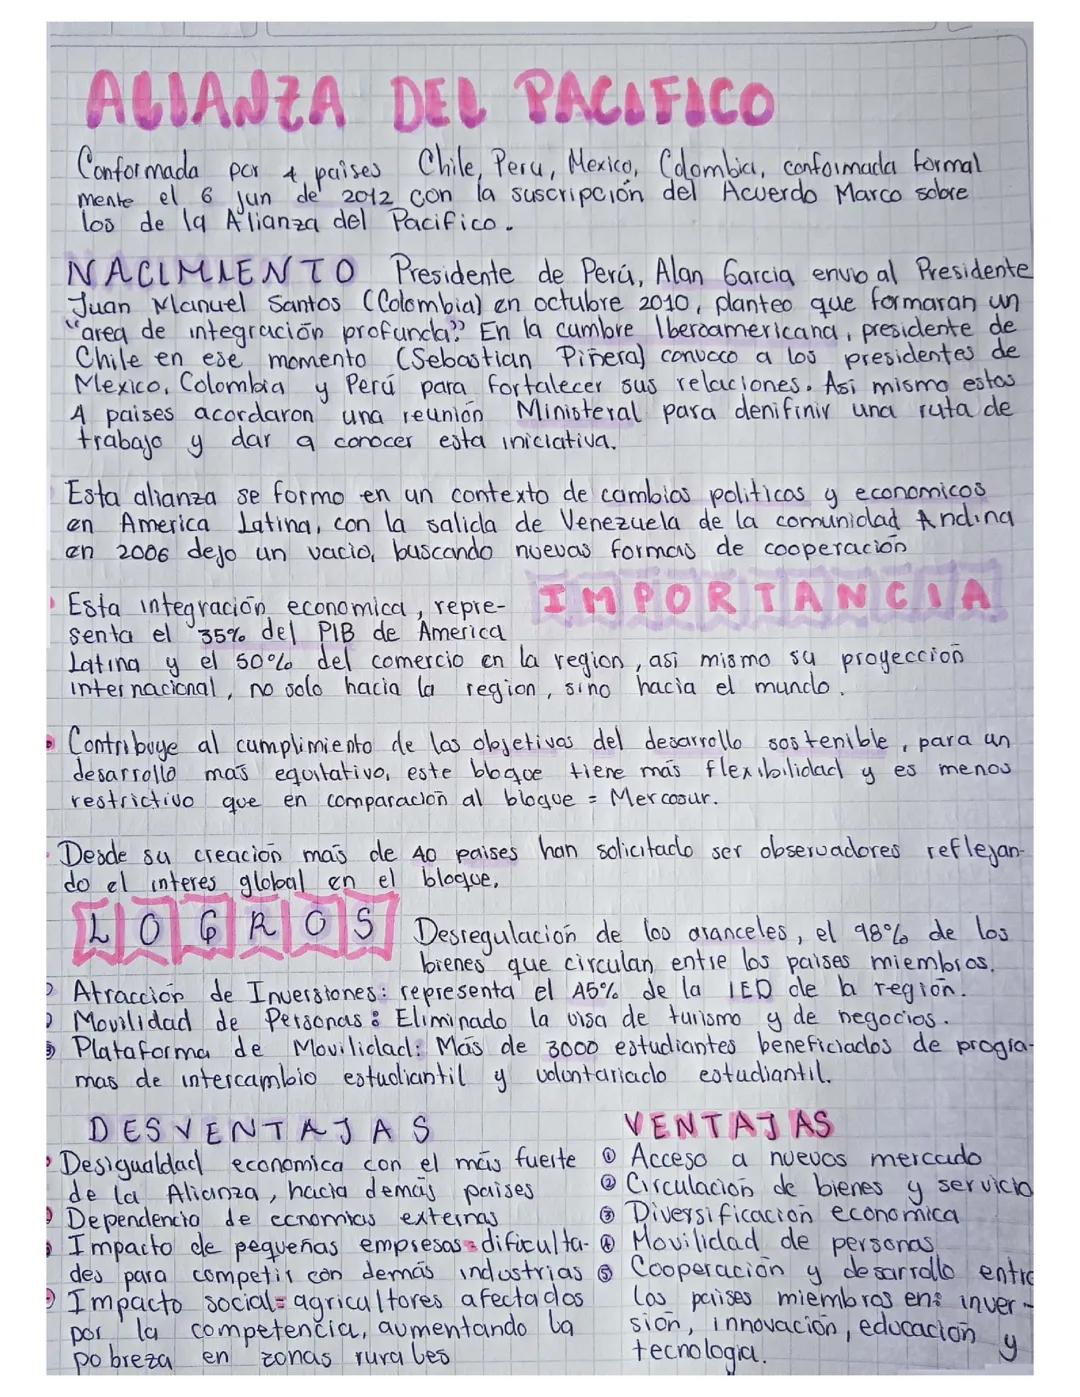 ALIANZA DEL PACIFICO
Conformada por 4 paises Chile, Peru, Mexico, Colombia, conformada formal
mente el 6 jun de 2012 con la suscripción del Acuerdo Marco sobre
los de la Alianza del Pacifico.
NACIMIENTO Presidente de Perú, Alan Garcia envio al Presidente
Juan Manuel Santos (Colombia) en octubre 2010, planteo que formaran un
"area de integración profunda" En la cumbre Iberoamericana, presidente de
Chile en ese momento (Sebastian Piñera) convoco a los presidentes de
Mexico, Colombia y Perú para fortalecer sus relaciones. Asi mismo estos
4 paises acordaron una reunión Ministeral para denifinir una ruta de
trabajo y dar a conocer esta iniciativa.
Esta alianza se formo en un contexto de cambios politicos y economicos
en America Latina, con la salida de Venezuela de la comunidad Andina
en 2006 dejo un vacio, buscando nuevas formas de cooperación
IMPORTANCIA
Esta integración economica, repre-
senta el 35% del PIB de America
Latina y el 50% del comercio en la region, asi mismo su proyección
internacional, no solo hacia la region, sino hacia el mundo.
Contribuye al cumplimiento de los objetivos del desarrollo sostenible, para un
desarrollo más equitativo, este bloque tiene más flexibilidad y es menos
restrictivo que en comparación al bloque = Mercosur.
Desde su creación más de 40 paises han solicitado ser observadores reflejan-
do el interes global en el bloque.
LOGROS Desregulación de los aranceles, el 98% de los
bienes que circulan entre los paises miembros.
Atracción de Inversiones: representa el 45% de la IED de la región.
Movilidad de Personas: Eliminado la visa de turismo y de negocios.
Plataforma de Movilidad: Más de 3000 estudiantes beneficiados de progra-
mas de intercambio estudiantil y voluntariado estudiantil.
DESVENTAJAS
Desigualdad economica con el más fuerte
de la Alianza, hacia demás paises
Dependencia de ecnomias externas
Impacto de pequeñas empresas: dificulta-
des para competir con demás industrias
Impacto social= agricultores afectados
por la competencia, aumentando la
pobreza en zonas rurales
VENTAJAS
① Acceso a nuevos mercado
② Circulación de bienes y servicio
③ Diversificación economica
④ Movilidad de personas
⑤ Cooperación y desarrollo entre
los paises miembros en: inver-
sión, innovación, educación y
tecnologia.